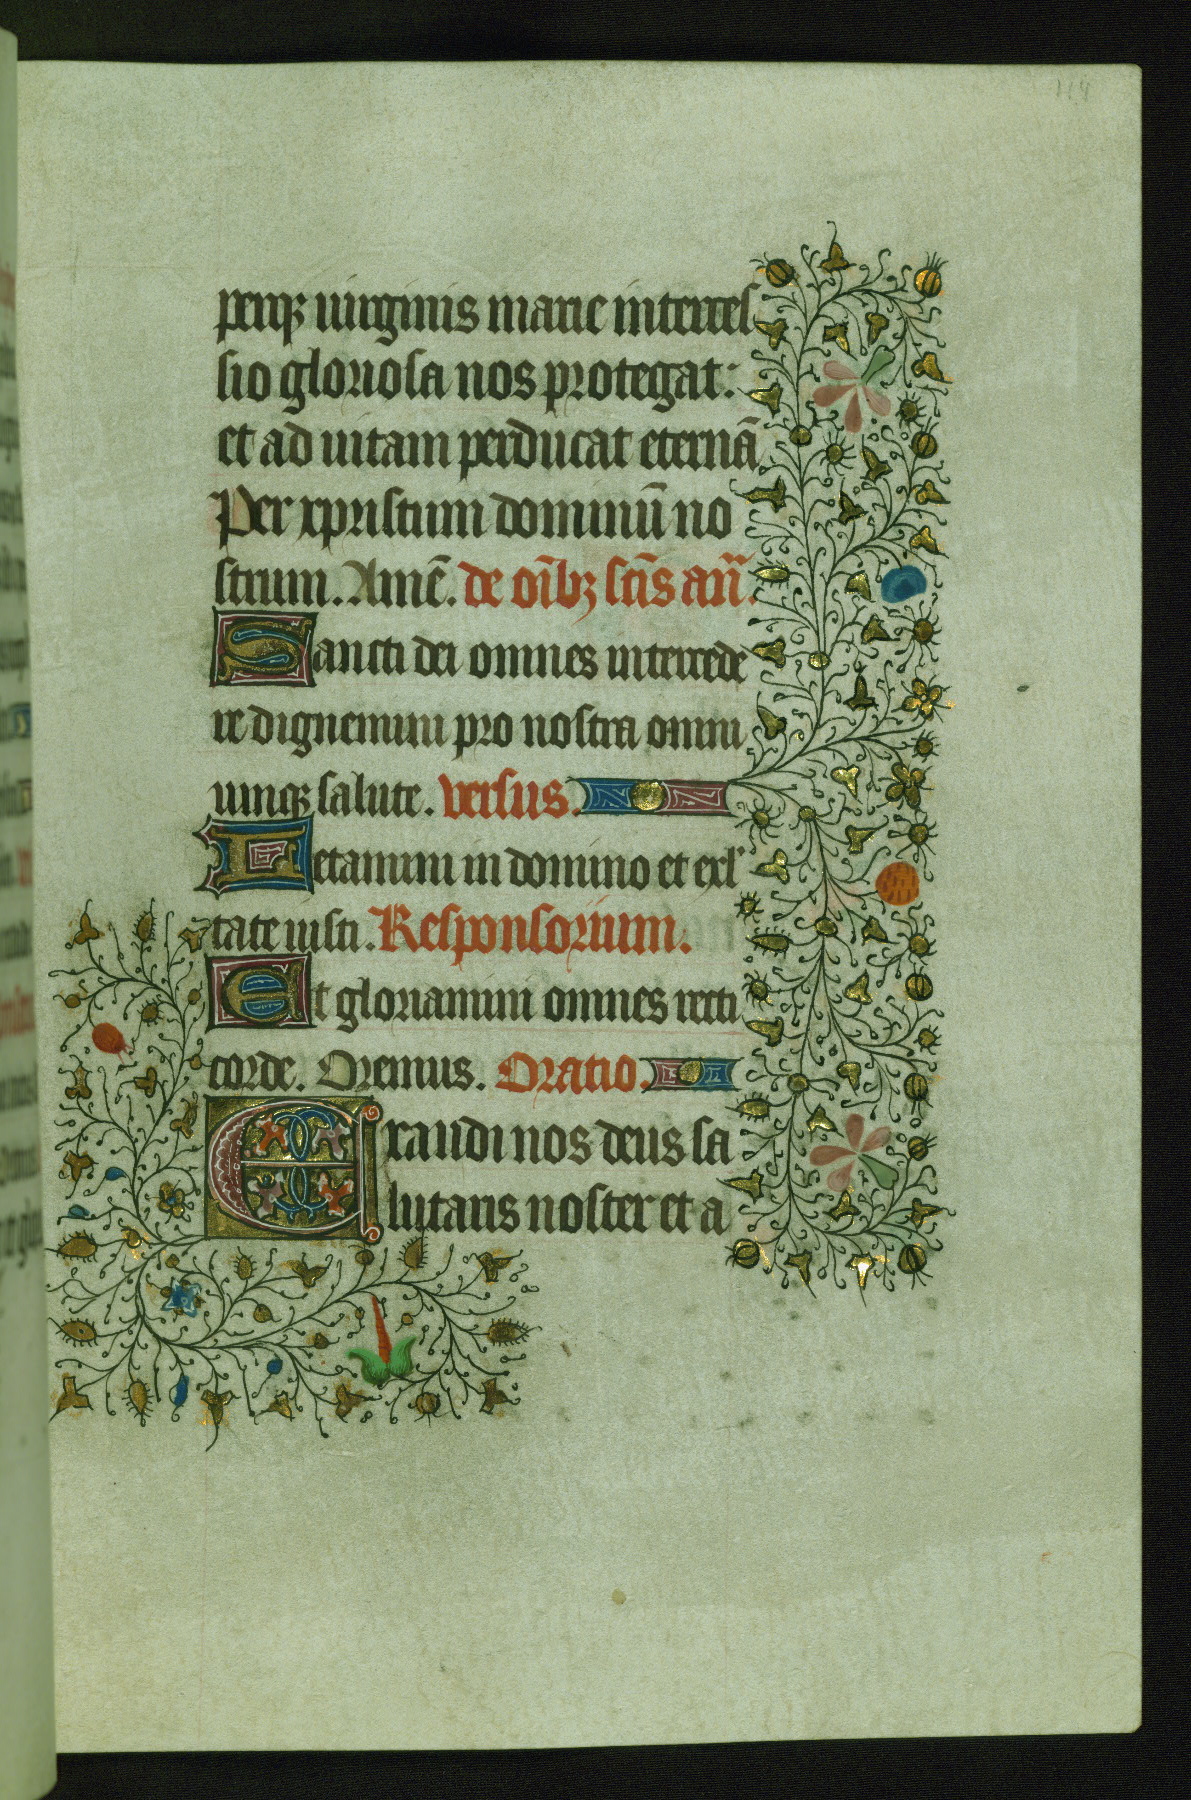 114
perqꝫ uirginis marie interces
sio gloriosa nos protegat:
et ad uitam perducat eternā
Per xpristum dominū no
strum. Amē. de oībꝫ sctīs an̄.
Sancti dei omnes intercede
re dignemini pro nostra omni
umqꝫ salute. versus.
Letamini in domino et exl'
tate iusti. Responsorium.
Et gloriamini omnes recti
corde. Oremus. Oratio.
Exaudi nos deus sa
lutaris noster et a